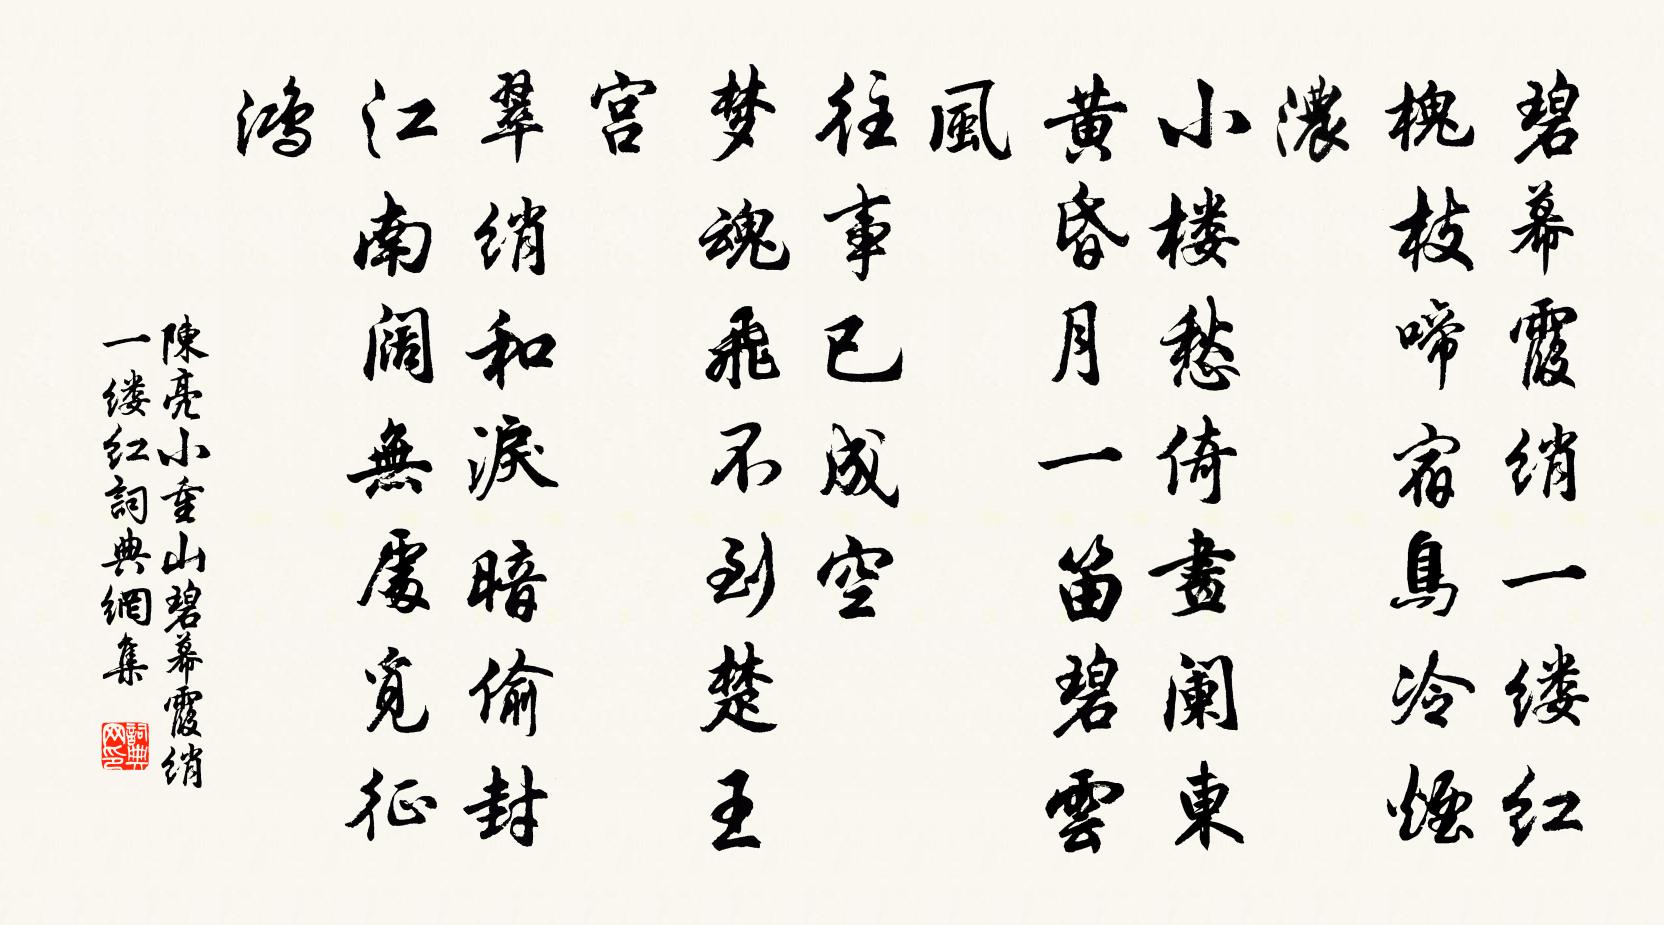 碧幕霞绡一缕红
槐枝啼宿鳥冷煙
濃
小楼愁倚畫阑東
黄昏月一笛碧雲
風
往事已成空
梦魂飛不到楚王
宫
翠绡和淚暗偷封
江南阔無處覓征
鸿
陳亮小重山碧幕霞绡
一缕红詞典網集
詞典
网印